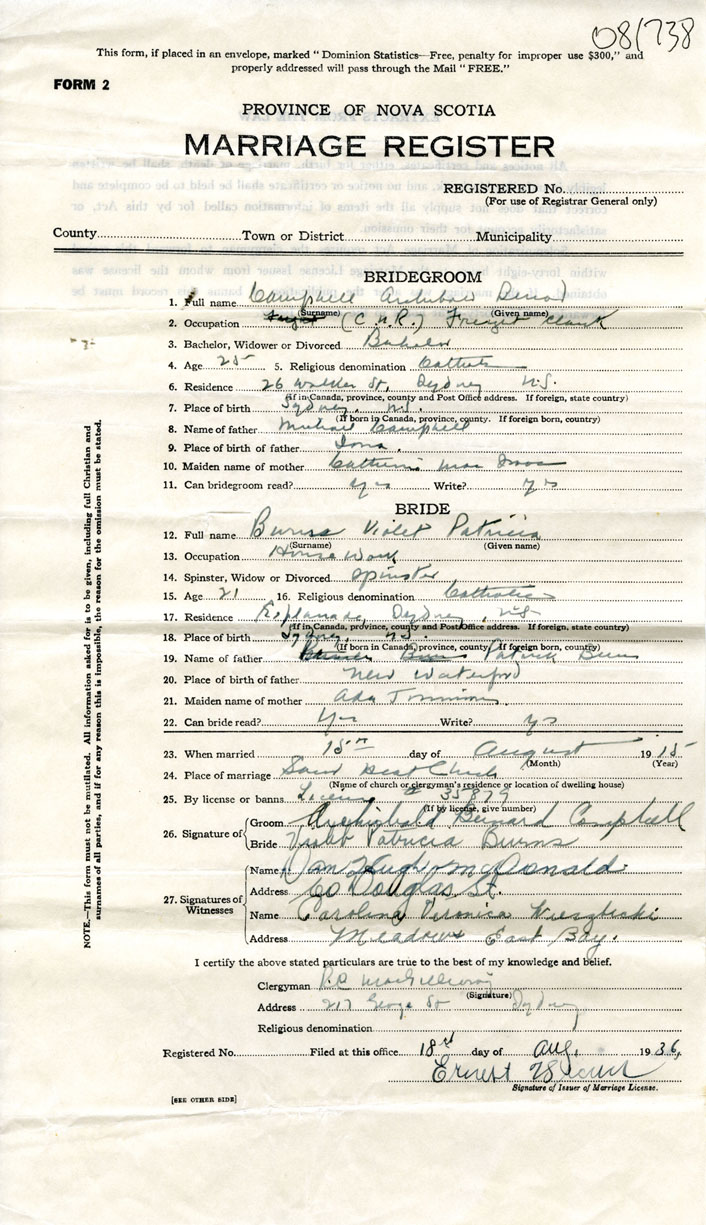 08/738
This form, if placed in an envelope, marked "Dominion Statistics—Free, penalty for improper use $300," and
properly addressed will pass through the Mail "FREE."
FORM 2
PROVINCE OF NOVA SCOTIA
MARRIAGE REGISTER
REGISTERED No.
(For use of Registrar General only)
County Town or District Municipality
BRIDEGROOM
1. Full name Campbell Archibald Bernard
(Surname) (Given name)
2. Occupation (C.N.R.) Freight Clerk
3. Bachelor, Widower or Divorced Bachelor
4. Age 25 5. Religious denomination Catholic
6. Residence 26 Walker St, Sydney N.S.
(If in Canada, province, county and Post Office address. If foreign, state country)
7. Place of birth Sydney, N.S.
(If born in Canada, province, county. If foreign born, country)
8. Name of father Michael Campbell
9. Place of birth of father Iona,
10. Maiden name of mother Catherine Mac
11. Can bridegroom read? yes Write? yes
BRIDE
12. Full name Burns Violet Patricia
(Surname) (Given name)
13. Occupation House Work
14. Spinster, Widow or Divorced Spinster
15. Age 21 16. Religious denomination Catholic
17. Residence Esplanade, Sydney, N.S.
(If in Canada, province, county and Post Office address. If foreign, state country)
18. Place of birth Sydney, N.S.
(If born in Canada, province, county. If foreign born, country)
19. Name of father Patrick Burns
20. Place of birth of father New Waterford
21. Maiden name of mother Ada
22. Can bride read? yes Write? yes
23. When married 15th day of August 1915
(Month) (Year)
24. Place of marriage Sacred Heart Church
(Name of church or clergyman's residence or location of dwelling house)
25. By license or banns License # 35879
(If by license, give number)
26. Signature of
Groom Archibald Bernard Campbell
Bride Violet Patricia Burns
27. Signatures of Witnesses
Name Dan Hugh McDonald
Address 60 Douglas St.
Name Carolina Veronica
Address Meadows East Bay.
I certify the above stated particulars are true to the best of my knowledge and belief.
Clergyman MacGillivray
(Signature)
Address 217 George St Sydney
Religious denomination
Registered No. Filed at this office 18 day of Aug. 1936,
Ernest
Signature of Issuer of Marriage License.
[SEE OTHER SIDE]
NOTE.—This form must not be mutilated. All information asked for is to be given, including full Christian and
surnames of all parties, and if for any reason this is impossible, the reason for the omission must be stated.